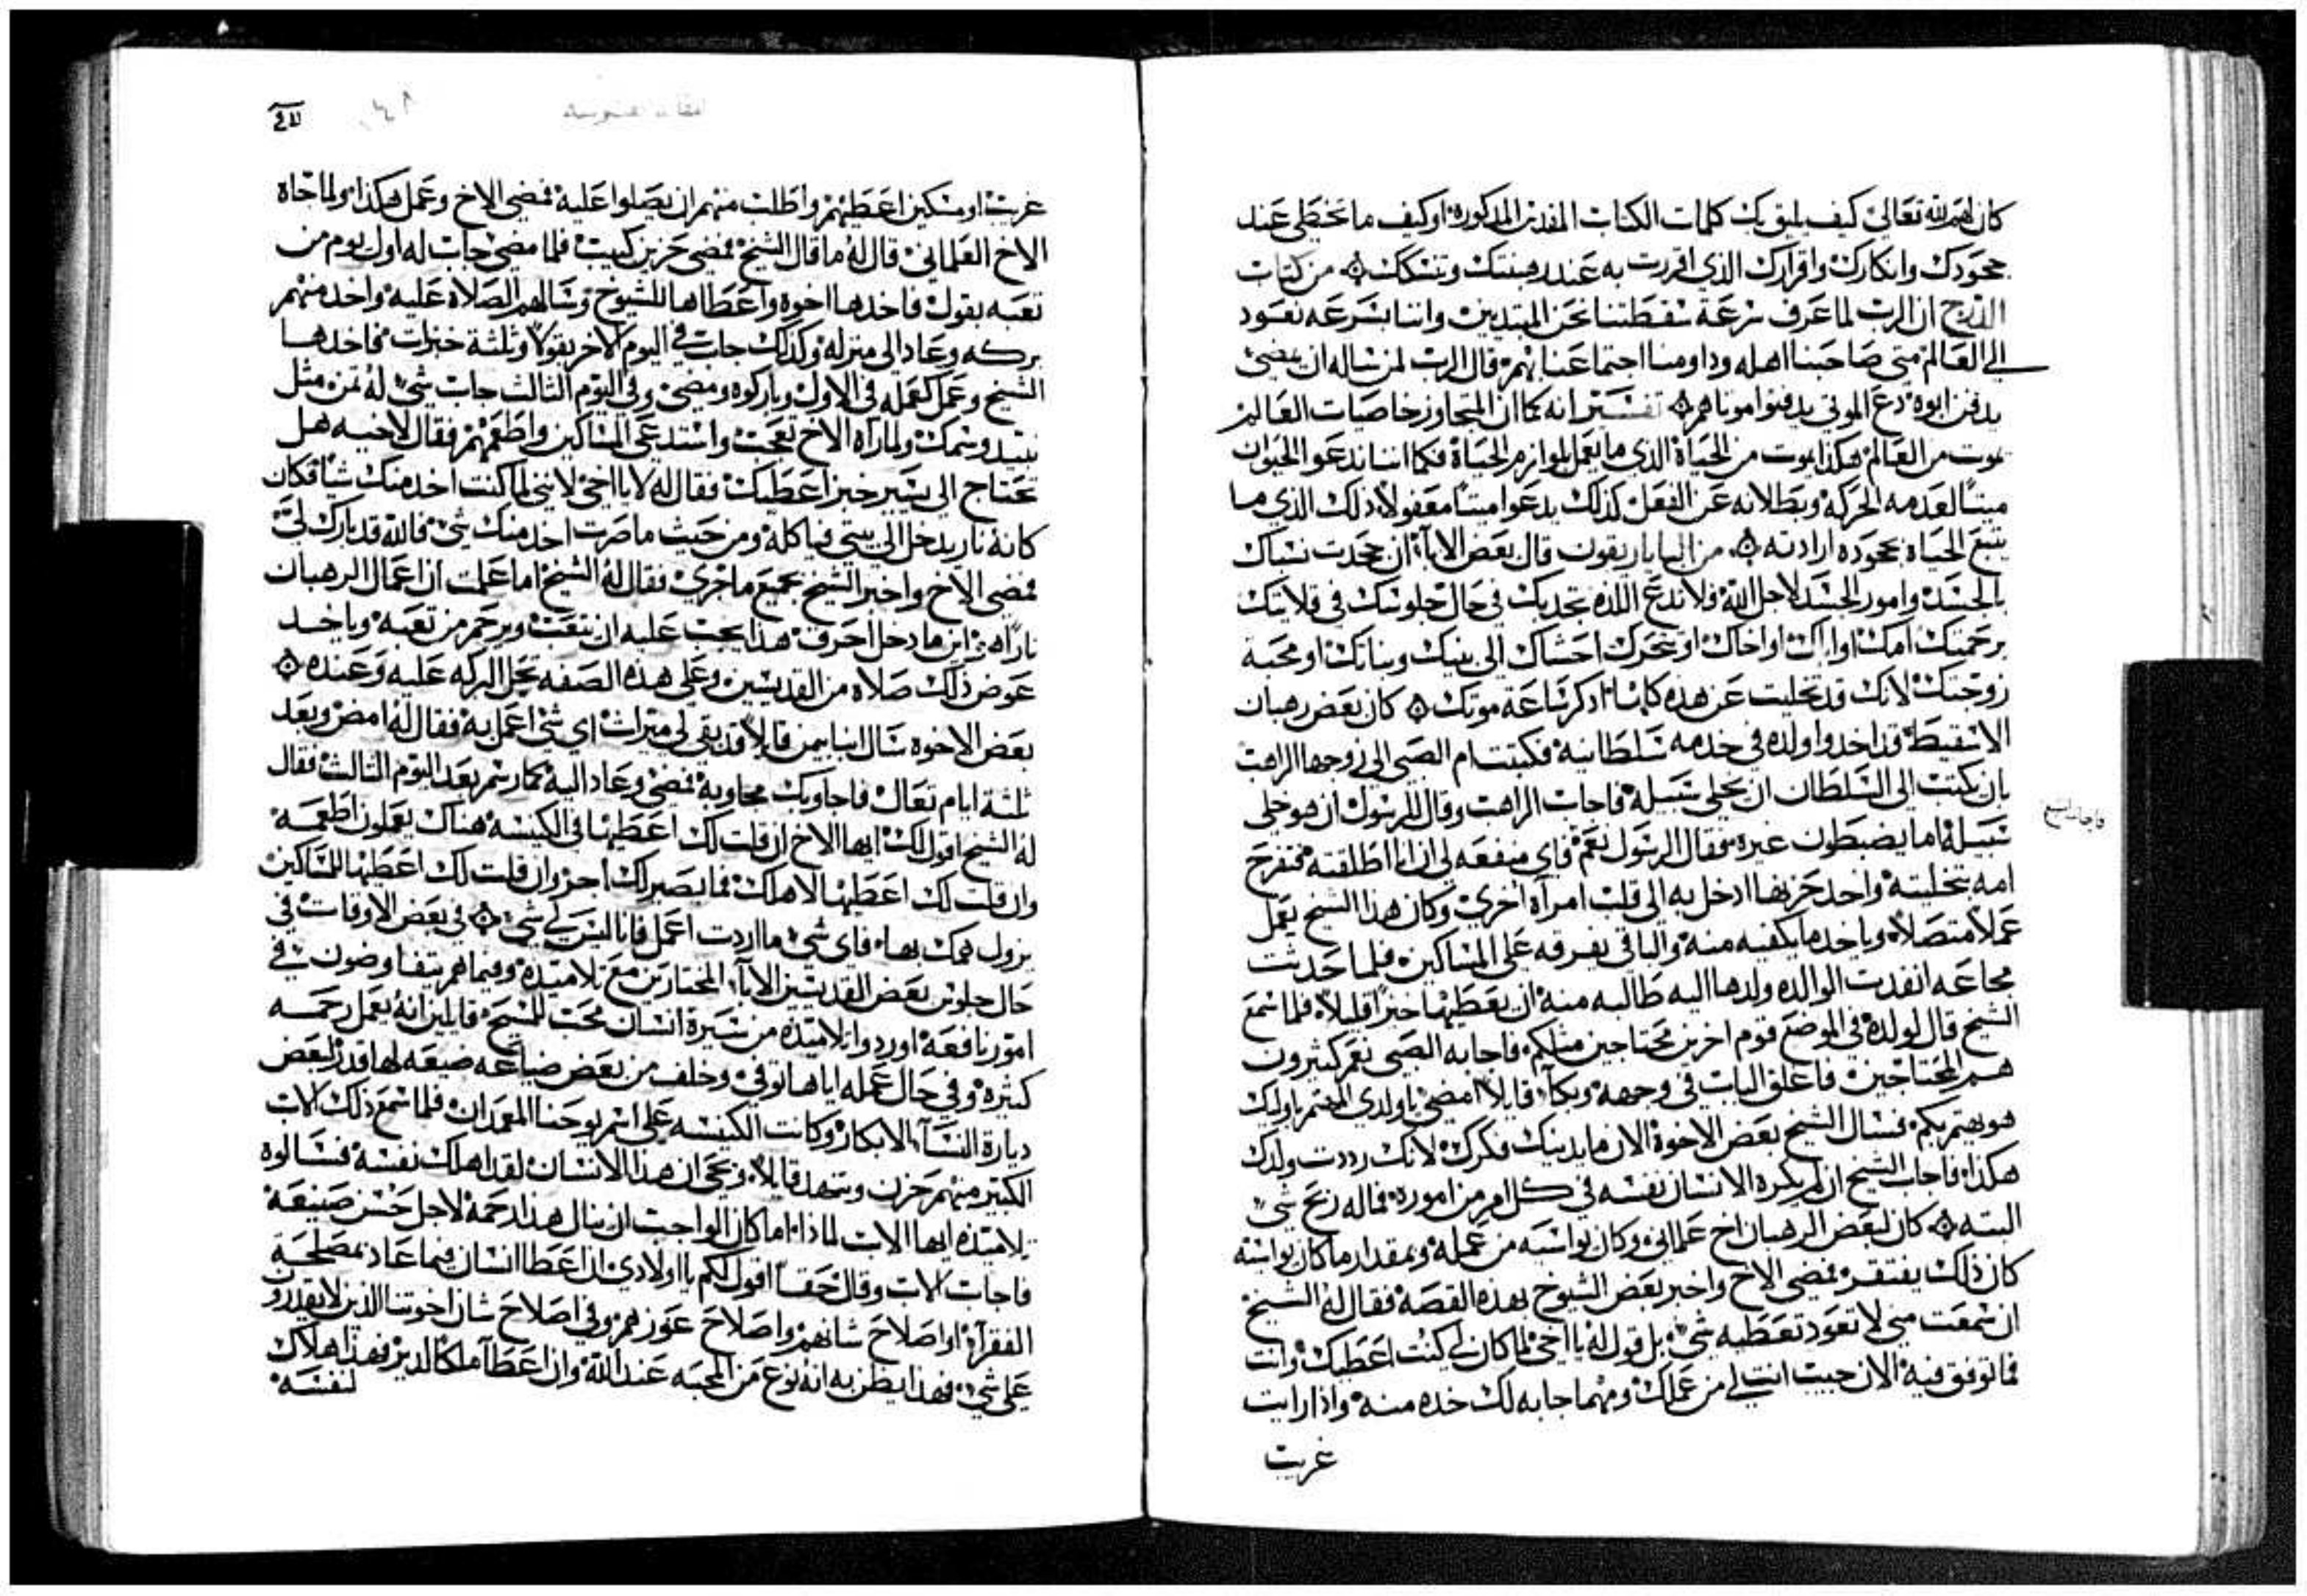 كان لهم لله تعالى كيف يليق بك كلمات الكتاب المقدس المذكورة او كيف ما تخطى عند
جحودك وانكارك واقرارك الذي اقررت به عند رهبنتك وتنسكك ۞ من كتاب
الدرج ان الرب لما عرف سرعة سقطتنا نحن المبتديين واننا بسرعه نعود
الى العالم متى صاحبنا اهله وداومنا اجتماعنا بهم قال الرب لمن ساله ان يمضي
يدفن ابوه دع الموتى يدفنوا موتاهم ۞ تفسير انه كما ان المتجاوز خاصيات العالم
يموت من العالم هكذا يموت من الحياة الذي ما يعمل بلوازم الحياة فكما اننا ندعو الحيوان
ميتا لعدمه الحركه وبطلانه عن الفعل كذلك يدعوا ميتا معقولا ذلك الذي ما
يتبع الحياة بجحوده ارادته ۞ من الباباريقون قال بعض الابآء ان جحدت نسباك
بالجسد وامور الجسد لاجل الله ولا تدع اللذه تجذبك في حال جلوسك في قلايتك
برحمتك امك او اباك او اخاك او تحرك احشاك الى بنيك وبناتك او محبة
زوجتك لانك قد تخليت عن هذه كلها اذكر ساعة موتك ۞ كان بعض رهبان
الاسقيط قد اخدوا ولده في خدمه سلطانيه فكتبت ام الصبي الى زوجها الراهب
بان يكتب الى السلطان ان يخلى سبيله فاجاب الراهب وقال للرسول ان هو خلى
فاجاب الشيخ
سبيله اما يضبطون غيره فقال الرسول نعم فاي منفعه لي ان انا اطلقته فتفرح
امه بتخليته واخد حزنها ادخل به الى قلب امرآة اخرى وكان هذا الشيخ يعمل
عملا متصلا وياخد ما يكفيه منه والباقي يفرقه على المساكين فلما حدثت
مجاعه انفدت الوالده ولدها اليه طالبه منه ان يعطيها خبزا قليلا فلما سمع
الشيخ قال لولده في الموضع قوم اخرين محتاجين مثلكم فاجابه الصبي نعم كثيرون
هم المحتاجين فاغلق الباب في وجهه وبكآ قايلا امضي يا ولدي المهتم باوليك
هو يهتم بكم فسال الشيخ بعض الاخوة الان ما يدينك فكرك لانك رددت ولدك
هكذا فاجاب الشيخ ان لم يكره الانسان نفسه في كل امر من اموره فما له ربح شي
البته ۞ كان لبعض الرهبان اخ علماني وكان يواسيه من عمله وبمقدار ما كان يواسيه
كان ذلك يفتقر فمضى الاخ واخبر بعض الشيوخ بهذه القصة فقال له الشيخ
ان سمعت مني لا تعود تعطيه شي بل قول له يا اخي لما كان لي كنت اعطيك وانت
فما توفق فيه الان جيب انت لي من عملك ومهما جابه لك خده منه واذا رايت
غريب
غريب او مسكين اعطيهم واطلب منهم ان يصلوا عليه فمضى الاخ وعمل هكذا ولما جاه
الاخ العلماني قال له ما قال الشيخ فمضى حزين كييب فلما مضى جاب له اول يوم من
تعبه بقول فاخدها اخوه واعطاها للشيوخ وسالهم الصلاة عليه واخد منهم
بركه وعاد الى منزله وكذلك جاب في اليوم الاخر بقولا وثلثة خبزات فاخدها
الشيخ وعمل كعمله في الاول وباركوه ومضى وفي اليوم الثالث جاب شي له ثمن مثل
نبيد وسمك ولما رآه الاخ تعجب واستدعى المساكين واطعمهم فقال لاخيه هل
تحتاج الى يسير خبز اعطيك فقال له لا يا اخي لانني لما كنت اخد منك شيا فكان
كانه نار يدخل الى بيتي فياكله ومن حيث ما صرت اخد منك شي فالله قد بارك لي
فمضى الاخ واخبر الشيخ بجميع ما جرى فقال له الشيخ اما علمت ان اعمال الرهبان
نارا هي اين ما دخل احرق هذا يجب عليه ان يتعب ويرحم من تعبه وياخد
عوض ذلك صلاه من القديسين وعلى هذه الصفه تحل البركه عليه وعنده ۞
بعض الاخوه سال انبا بيمن قايلا قد بقي لي ميراث اي شي اعمل به فقال له امض وبعد
ثلثة ايام تعال فاجاوبك مجاوبه فمضى وعاد اليه كما رسم بعد اليوم الثالث فقال
له الشيخ اقول لك ايها الاخ ان قلت لك اعطيها في الكنيسه هناك يعملون اطعمه
وان قلت لك اعطيها لاهلك فما يصير لك اجر وان قلت لك اعطيها للمساكين
يزول همك بها فاي شي ما اردت اعمل فانا ليس لي شي ۞ في بعض الاوقات في
حال جلوس بعض القديسين الابآء المختارين مع تلاميده وفيما هم يتفاوضون في
امور نافعة اوردوا تلاميده من سيرة انسان محب للمسيح قايلين انه يعمل رحمه
كثيره وفي حال عمله اياها توفي وخلف من بعض ضياعه ضيعه لها قدر لبعض
ديارة النسآء الابكار وكانت الكنيسه على اسم يوحنا المعمدان فلما سمع ذلك الاب
الكبير منهم حزن وتنهد قايلا ويحي ان هذا الانسان لقد اهلك نفسه فسالوه
تلاميده ايها الاب لماذا اما كان الواجب ان ينال هذا رحمة لاجل حسن صنيعه
فاجاب الاب وقال حقا اقول لكم يا اولادي ان اعطا انسان فيما عاد بمصلحة
الفقرآء او اصلاح شانهم واصلاح عوزهم وفي اصلاح شان اخوتنا الذين لا يقدرون
على شي فهذا يظن به انه نوع من المحبه عند الله وان اعطا املاكا لدير فهذا هلاك
لنفسه